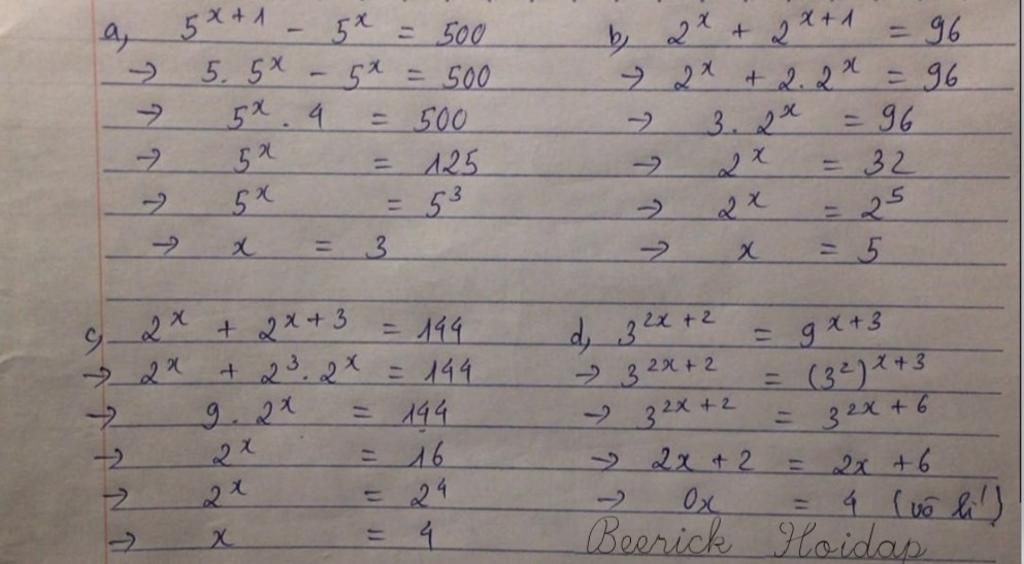 a, 5^{x+1} - 5^x = 500
→ 5. 5^x - 5^x = 500
→ 5^x . 4 = 500
→ 5^x = 125
→ 5^x = 5^3
→ x = 3
b, 2^x + 2^{x+1} = 96
→ 2^x + 2. 2^x = 96
→ 3. 2^x = 96
→ 2^x = 32
→ 2^x = 2^5
→ x = 5
c, 2^x + 2^{x+3} = 144
→ 2^x + 2^3. 2^x = 144
→ 9. 2^x = 144
→ 2^x = 16
→ 2^x = 2^4
→ x = 4
d, 3^{2x+2} = 9^{x+3}
→ 3^{2x+2} = (3^2)^{x+3}
→ 3^{2x+2} = 3^{2x+6}
→ 2x+2 = 2x+6
→ 0x = 4 (vô lí)
Beerick Hoidap